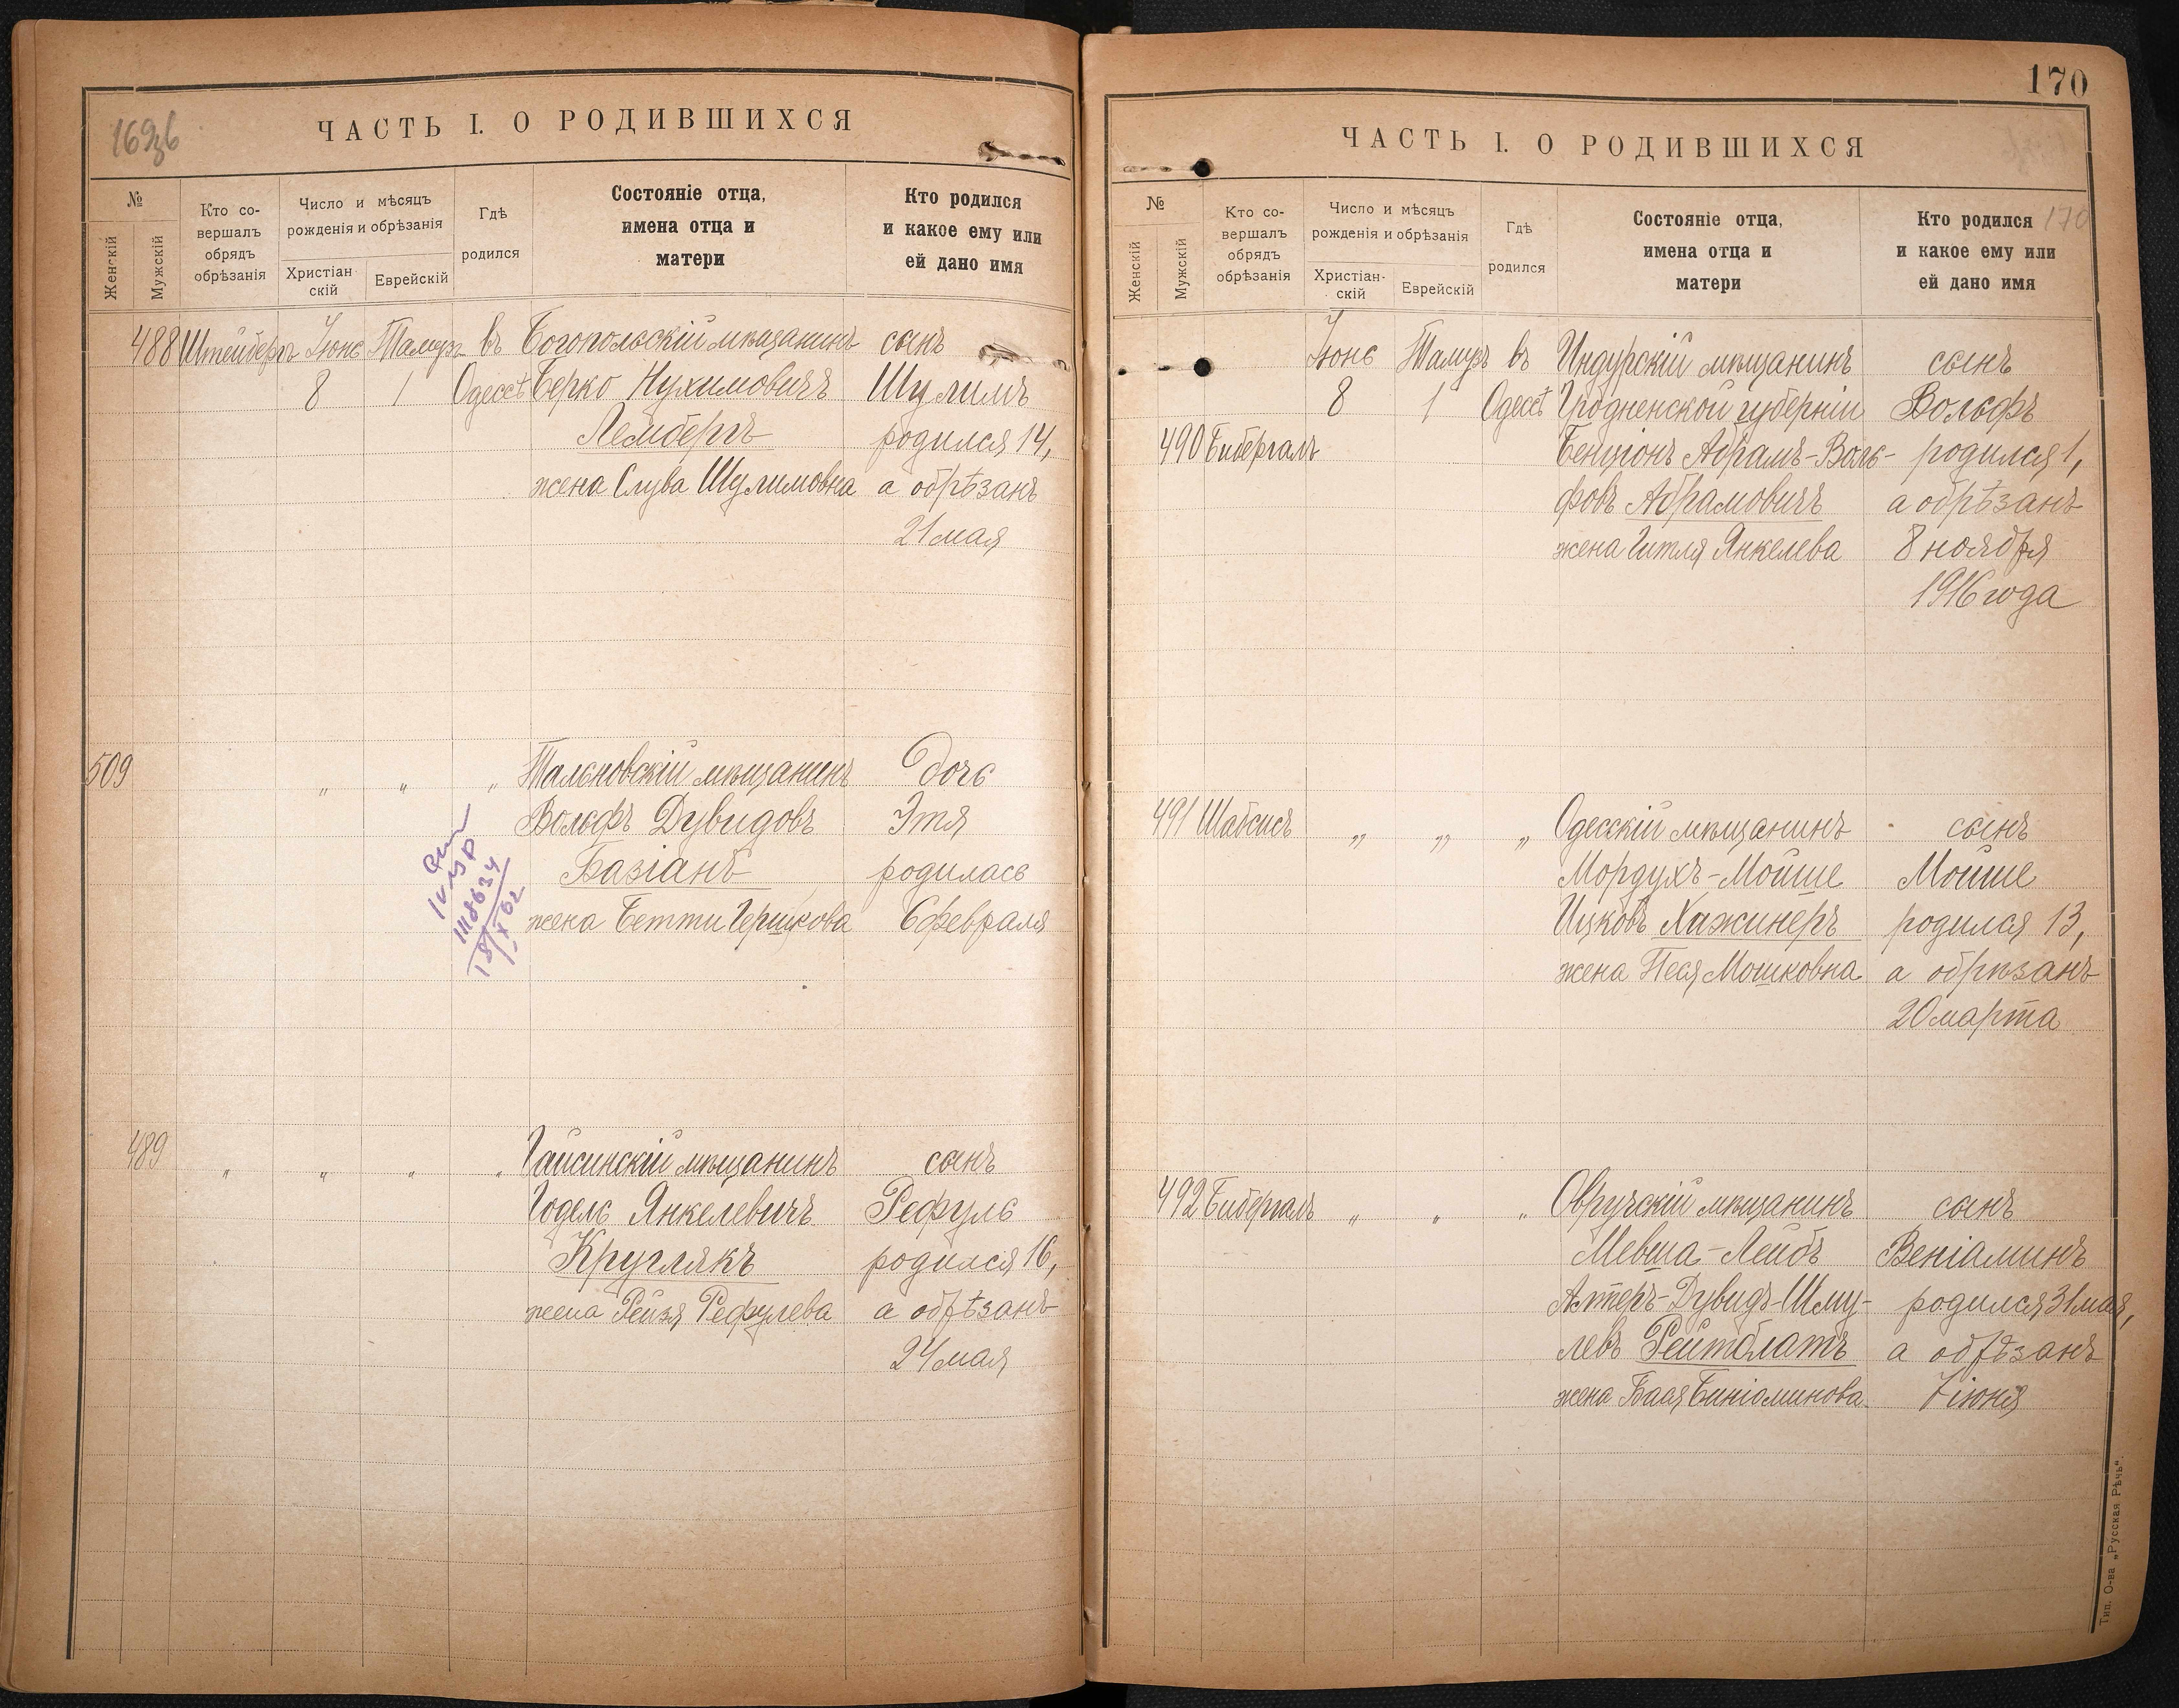 169зв
ЧАСТЬ I. О РОДИВШИХСЯ
№
Женскій
Мужскій
Кто со-
вершалъ
обрядъ
обрѣзанія
Число и мѣсяцъ
рожденія и обрѣзанія
Христіан-
скій
Еврейскій
Гдѣ
родился
Состояніе отца,
имена отца и
матери
Кто родился
и какое ему или
ей дано имя
488 Штейнбергъ Іюнь Тамузъ въ Богопольскій мѣщанинъ сынъ
8 1 Одессѣ Берко Нухимовичъ Шулимъ
Лембергъ родился 14,
жена Слува Шулимовна а обрѣзанъ
21 мая
509 „ „ „ Тальновскій мѣщанинъ дочь
Вольфъ Дувидовъ Этя
Базіанъ родилась
жена Бетти Гершкова 6 февраля
IV УР
1118634
18/X 62
489 „ „ „ „ Гайсинскій мѣщанинъ сынъ
Годель Янкелевичъ Рефулъ
Круглякъ родился 16,
жена Рейзя Рефулева а обрѣзанъ
24 мая
170
ЧАСТЬ I. О РОДИВШИХСЯ
170
№
Женскій
Мужскій
Кто со-
вершалъ
обрядъ
обрѣзанія
Число и мѣсяцъ
рожденія и обрѣзанія
Христіан-
скій
Еврейскій
Гдѣ
родился
Состояніе отца,
имена отца и
матери
Кто родился
и какое ему или
ей дано имя
Іюнь Тамузъ въ Индурскій мѣщанинъ сынъ
8 1 Одессѣ Гродненской губерніи Вольфъ
490 Бибергалъ Бенціонъ Абрамъ-Воль- родился 1,
фовъ Абрамовичъ а обрѣзанъ
жена Гитля Янкелева 8 ноября
1916 года
491 Шабсисъ „ „ „ Одесскій мѣщанинъ сынъ
Мордухъ-Мойше Мойше
Ицковъ Хажинеръ родился 13,
жена Песя Мошковна а обрѣзанъ
20 марта
492 Бибергалъ „ „ „ Овручскій мѣщанинъ сынъ
Мевша-Лейбъ Веніаминъ
Алтеръ-Дувидъ-Шму- родился 31 мая,
левъ Рейтблатъ а обрѣзанъ
жена Бася Биніоминова 7 іюня
Тип. О-ва „Русская Рѣчь“.